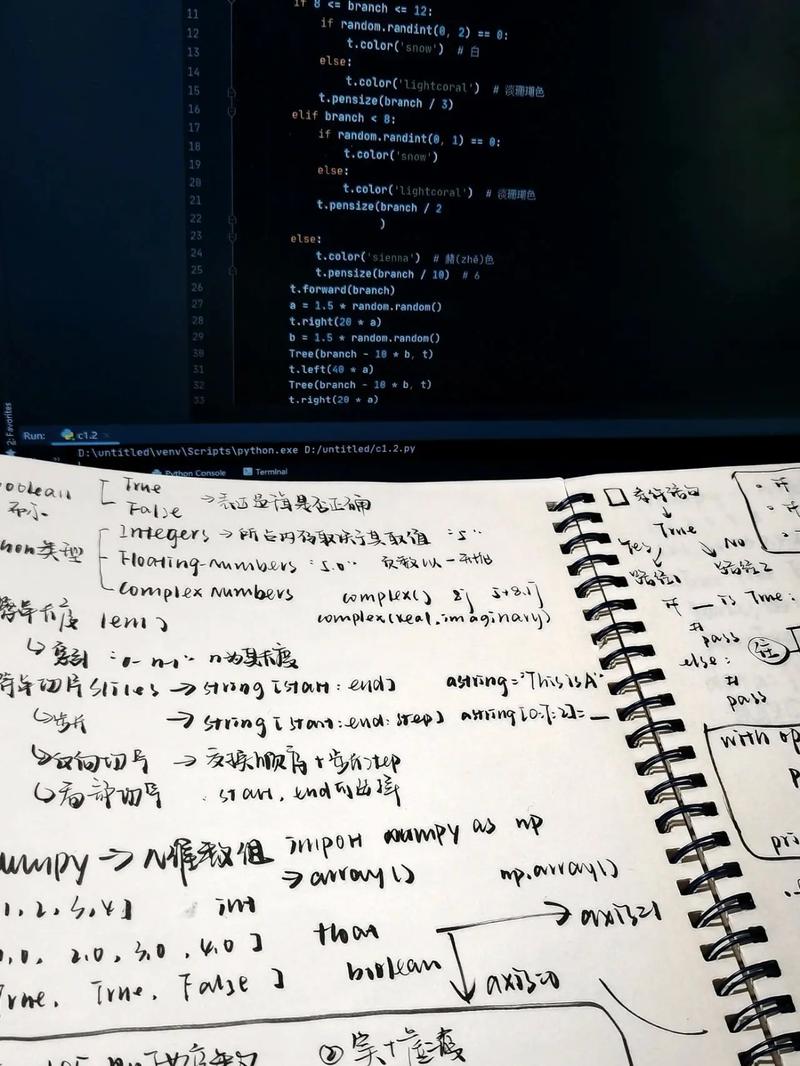 11 if 8 <= branch <= 12:
12 if random.randint(0, 2) == 0:
13 t.color('snow') # 白
14 else:
15 t.color('lightcoral') # 淡珊瑚色
16 t.pensize(branch / 3)
17 elif branch < 8:
18 if random.randint(0, 1) == 0:
19 t.color('snow')
20 else:
21 t.color('lightcoral') # 淡珊瑚色
22 t.pensize(branch / 2
23 )
24 else:
25 t.color('sienna') # 赭(zhě)色
26 t.pensize(branch / 10) # 6
27 t.forward(branch)
28 a = 1.5 * random.random()
29 t.right(20 * a)
30 b = 1.5 * random.random()
31 Tree(branch - 10 * b, t)
32 t.left(40 * a)
33 Tree(branch - 10 * b, t)
t.right(20 * a)
2: Favorites
Run: c1.2
D:\untitled\venv\Scripts\python.exe D:/untitled/c1.2.py
Python Console Terminal
boolean True
False → 表征是否正确
类型 Integers → 所占内存取决于其取值 "5"
Floating-numbers "5.0"
Complex Numbers complex() 2j 5+8.1j
长度 len() complex(real, imaginary)
切片 slices → string[start:end] astring="This is A"
→ string[start:end:step] astring[0:7:2]=
反向切片 → 反换顺序+步行step
start, end
numpy → N维数组 import numpy as np
→ array() np.array()
1, 2, 3, 4] int
2.0, 3.0, 4.0] float
True, True, False] boolean
axis=1
axis=0
②
条件语句
True
Yes No
路径1 路径2
if — is True:
pass
else:
pass
with op